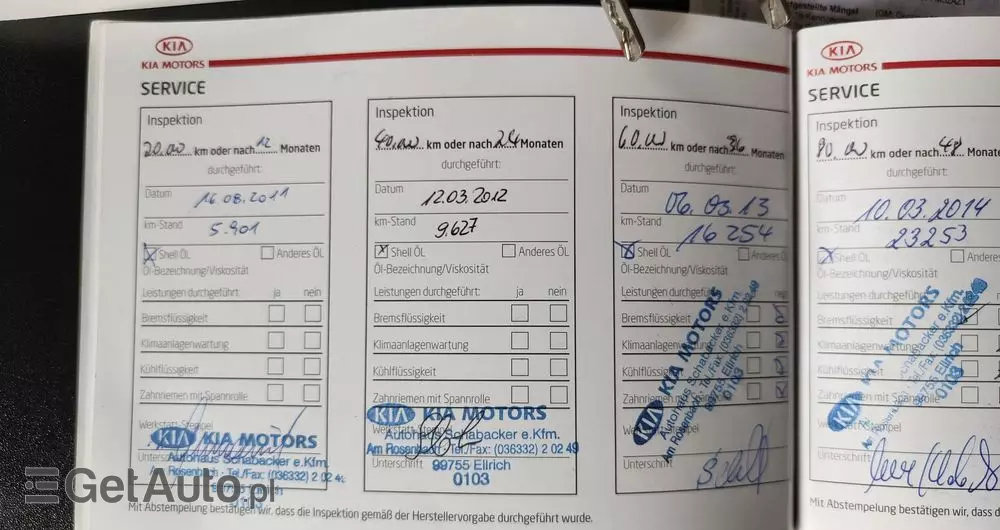 KIA
KIA MOTORS
SERVICE
Inspektion
20.000 km oder nach 12 Monaten
durchgeführt:
Datum
16.08.2011
km-Stand
5.901
Shell ÖL
Anderes ÖL
Öl-Bezeichnung/Viskosität
Leistungen durchgeführt: ja nein
Bremsflüssigkeit
Klimaanlagenwartung
Kühlflüssigkeit
Zahnriemen mit Spannrolle
KIA KIA MOTORS
Autohaus Schabacker e.Kfm.
Am Rosenbach · Tel./Fax: (036332) 2 02 49
Unterschrift
Inspektion
40.000 km oder nach 24 Monaten
durchgeführt:
Datum
12.03.2012
km-Stand
9.627
Shell ÖL
Anderes ÖL
Öl-Bezeichnung/Viskosität
Leistungen durchgeführt: ja nein
Bremsflüssigkeit
Klimaanlagenwartung
Kühlflüssigkeit
Zahnriemen mit Spannrolle
KIA KIA MOTORS
Autohaus Schabacker e.Kfm.
Am Rosenbach · Tel./Fax: (036332) 2 02 49
Unterschrift 99755 Ellrich
0103
Inspektion
60.000 km oder nach 36 Monaten
durchgeführt:
Datum
06.03.13
km-Stand
16254
Shell ÖL
Anderes
Öl-Bezeichnung/Viskosität
Leistungen durchgeführt:
Bremsflüssigkeit
Klimaanlagenwartung
Kühlflüssigkeit
Zahnriemen mit Spannrolle
KIA KIA MOTORS
Autohaus Schabacker e.Kfm.
Am Rosenbach · Tel./Fax: (036332) 2 02 49
99755 Ellrich
0103
Unterschrift
Mit Abstempelung bestätigen wir, dass die Inspektion gemäß der Herstellervorgabe durchgeführt wurde.
KIA
KIA MOTORS
SERVICE
Inspektion
80.000 km oder nach 48 Monaten
durchgeführt:
Datum
10.03.2014
km-Stand
23253
Shell ÖL
Anderes
Öl-Bezeichnung/Viskosität
Leistungen durchgeführt:
Bremsflüssigkeit
Klimaanlagenwartung
Kühlflüssigkeit
Zahnriemen mit Spannrolle
KIA KIA MOTORS
Autohaus Schabacker e.Kfm.
Am Rosenbach · Tel./Fax: (036332)
99755 Ellrich
0103
Unterschrift
Mit Abstempelung bestätigen wir, dass d
GetAuto.pl